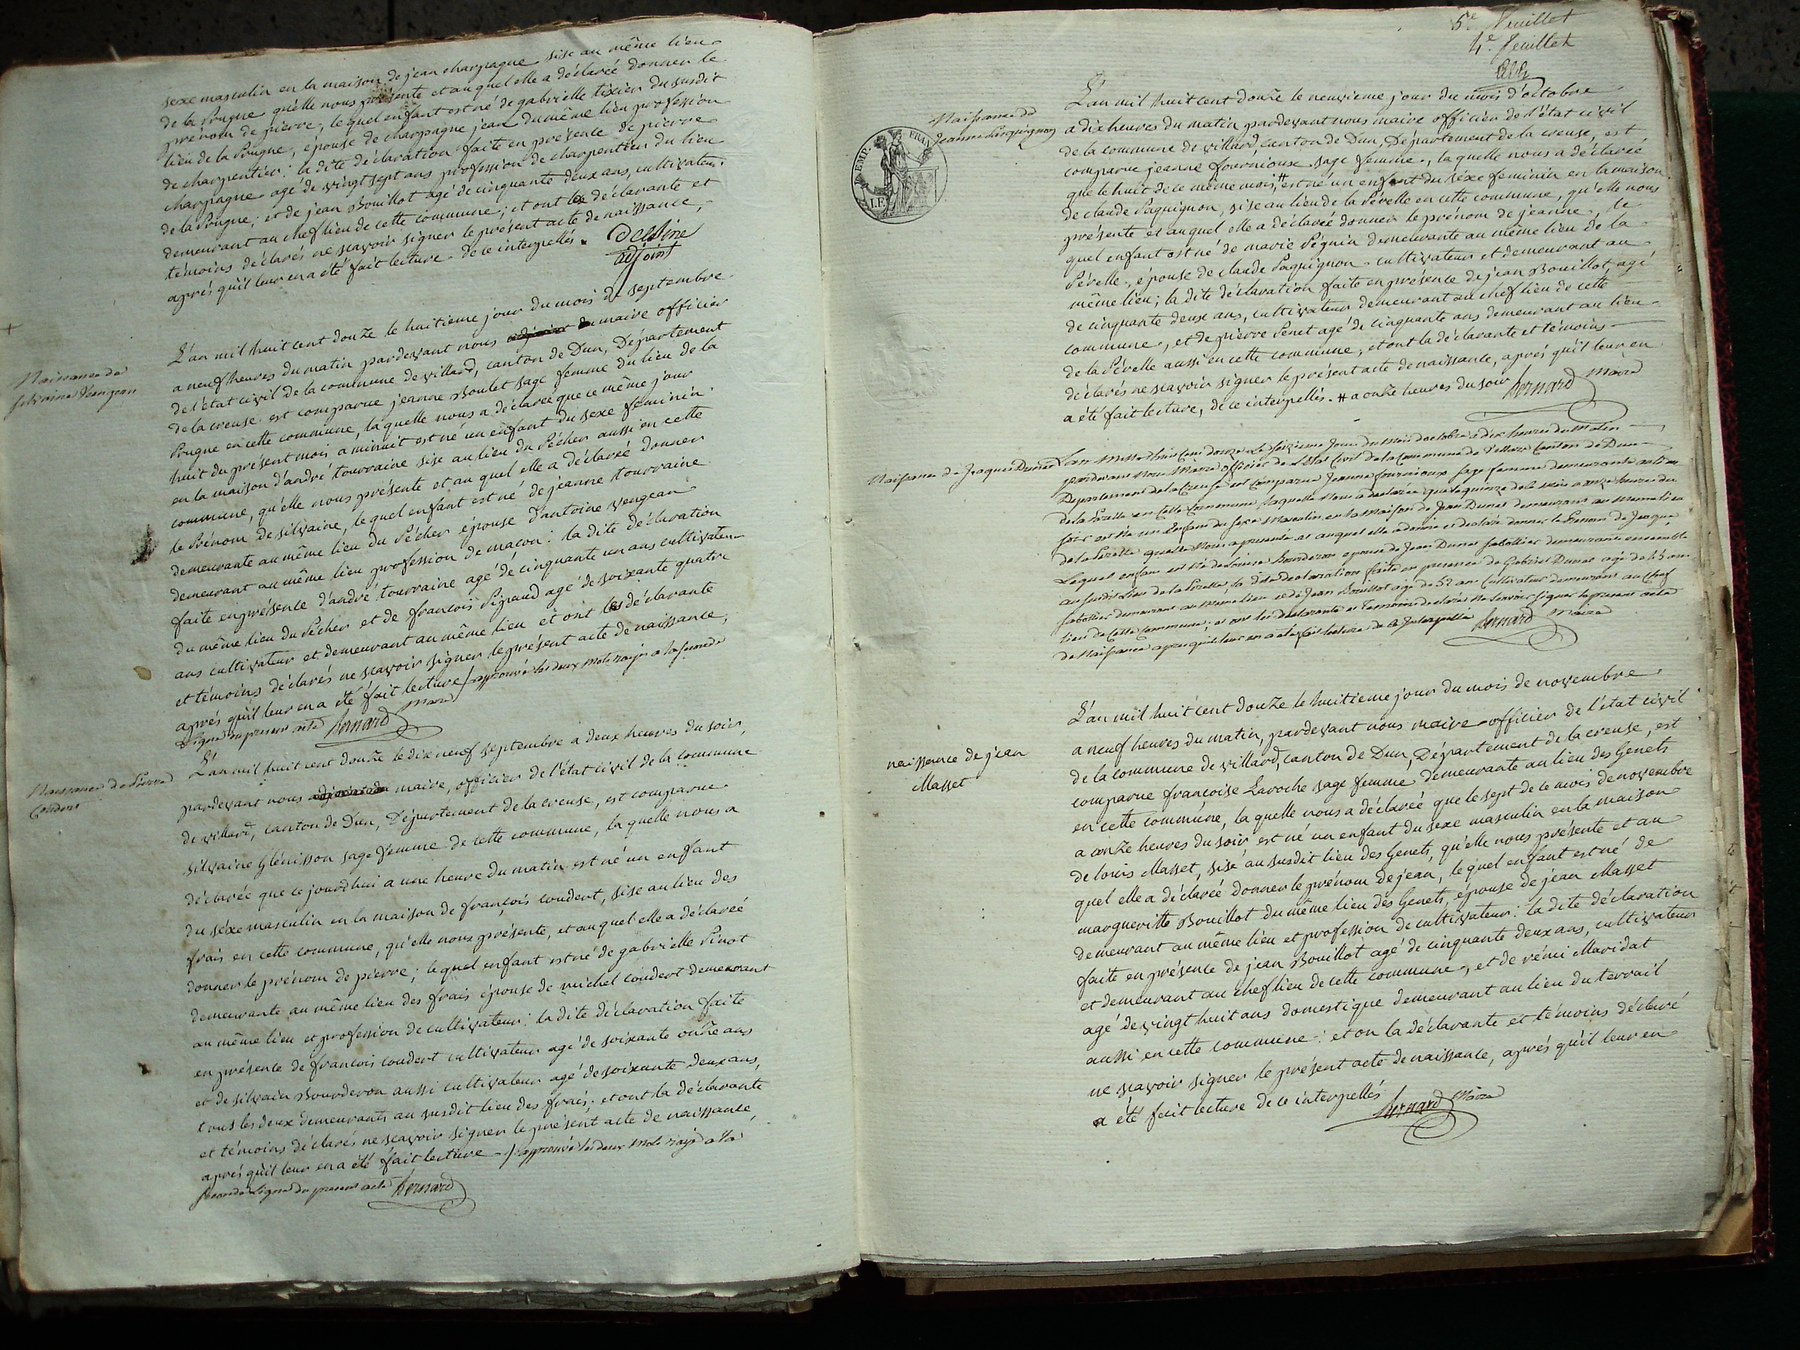 sexe masculin en la maison de jean champagne sise au même lieu
de la Pougne qu'elle nous présente et auquel elle a déclaréé donner le
prénom de pierre, lequel enfant est né de gabrielle tixier du susdit
lieu de la Pougne, epouse de champagne jean du même lieu profession
de charpentier : la dite déclaration faite en présence de pierre
champagne agé de vingt sept ans profession de charpentier du lieu
de la Pougne ; et de jean Bouillot agé de cinquante deux ans, cultivateur
demeurant au chef lieu de cette commune ; et ont les déclarante et
témoins déclarés ne sçavoir signer le présent acte de naissance,
après qu'il leur en a été fait lecture de ce interpellés.
adjoint
Naissance de
silvaine Vengean
L'an mil huit cent douze le huitieme jour du mois de septembre
a neuf heures du matin pardevant nous maire officier
de l'état civil de la commune de villard, canton de Dun, Département
de la creuse est comparue jeanne Boulet sage femme du lieu de la
Pougne en cette commune, laquelle nous a déclaréé que ce même jour
huit du présent mois a minuit est né un enfant du sexe féminin
en la maison d'andré tourraine sise au lieu du Pécher aussi en cette
commune, qu'elle nous présente et au quel elle a déclaréé donner
le Prénom de silvaine, le quel enfant est né de jeanne tourraine
demeurante au même lieu du Pécher épouse d'antoine vengean
demeurant au même lieu profession de maçon : la dite déclaration
faite en présence d'andré tourraine agé de cinquante un ans cultivateur
du même lieu du Pécher et de françois Pigeaud agé de soixante quatre
ans cultivateur et demeurant au même lieu et ont les déclarante
et témoins déclarés ne sçavoir signer le présent acte de naissance,
après qu'il leur en a été fait lecture / approuvé les deux mots rayés a la seconde
ligne du present acte Bernard Maire
Naissance de Pierre
Coudert
L'an mil huit cent douze le dix neuf septembre a deux heures du soir,
pardevant nous maire, officier de l'état civil de la commune
de villard, canton de Dun, Département de la creuse, est comparue
silvaine Glénisson sage femme de cette commune, la quelle nous a
déclaréé que ce jourd'hui a une heure du matin est né un enfant
du séxe masculin en la maison de françois coudert, sise au lieu des
frais en cette commune, qu'elle nous présente, et au quel elle a déclaréé
donner le prénom de pierre ; le quel enfant est né de gabrielle Pinot
demeurante au même lieu des frais épouse de michel coudert demeurant
au même lieu et profession de cultivateur : la dite déclaration faite
en présence de françois coudert cultivateur agé de soixante onze ans
et de silvain Bourderon aussi cultivateur agé de soixante deux ans,
tous les deux demeurants au susdit lieu des frais. et ont la déclarante
et témoins déclarés ne sçavoir signer le présent acte de naissance,
après qu'il leur en a été fait lecture / approuvé les deux mots rayés a la
seconde ligne du present acte Bernard
5e feuillet
4e feuillet
Naissance de
Jeanne Paquignon
EMP. FRAN.
L'an mil huit cent douze le neuvieme jour du mois d'octobre
a dix heures du matin pardevant nous maire officier de l'état civil
de la commune de villard, canton de Dun, Département de la creuse, est
comparue jeanne fournioux sage femme, la quelle nous a déclaréé
que le huit de ce même mois # est né un enfant du sexe feminin en la maison
de claude Paquignon, sise au lieu de la Pérelle en cette commune, qu'elle nous
présente et auquel elle a déclaréé donner le prénom de jeanne, le
quel enfant est né de marie Péquin demeurante au même lieu de la
Pérelle, épouse de claude Paquignon cultivateur et demeurant au
même lieu ; la dite déclaration faite en présence de jean Bouillot, agé
de cinquante deux ans, cultivateur demeurant au chef lieu de cette
commune, et de pierre Penet agé de cinquante ans demeurant au lieu
de la Pérelle aussi en cette commune, et ont la déclarante et témoins
déclarés ne sçavoir signer le présent acte de naissance, après qu'il leur en
a été fait lecture, de ce interpellés. # a onze heures du soir Bernard Maire
Naissance de Jacques Dunet
L'an Mil huit Cent Douze Le Seizieme Jour du Mois doctobre a dix heures du Matin
pardevant Nous Maire officier de L'Etat Civil de la Commune de Villard Canton de Dun
Departement de la Creuse est Comparue Jeanne fournioux sage femme demeurante au lieu
de la Perelle en Cette Commune laquelle Nous a declarée que le quinze de ce Mois a onze heures du
soir est Né un Enfant du sexe Masculin en la Maison de Jean Dunet demeurant au Meme lieu
de la Perelle quelle Nous a presenté et auquel elle a declarée donner le Prenom de Jacques
Lequel enfant est Né de Louise Bourderon epouse de Jean Dunet Sabottier demeurante ensemble
au susdit lieu de la Perelle la ditte declaration faitte en presence de Gabriel Dunet agé de 23 ans
Sabottier demeurant au Meme lieu et de Jean Bouillot agé de 52 ans Cultivateur demeurant au Chef
lieu de Cette Commune ; et ont les declarante et Temoins declarés Ne scavoir signer le present acte
de Naissance apres quil leur en a été fait lecture de ce Interpellés Bernard Maire
naissance de jean
Masset
L'an mil huit cent douze le huitieme jour du mois de novembre
a neuf heures du matin, pardevant nous maire officier de l'état civil
de la commune de villard, canton de Dun, Département de la creuse, est
comparue françoise Laroche sage femme demeurante au lieu des Genets
en cette commune, la quelle nous a déclaréé que le sept de ce mois de novembre
a onze heures du soir est né un enfant du sexe masculin en la maison
de loüis Masset, sisé au susdit lieu des Genets, qu'elle nous présente et au
quel elle a déclaréé donner le prénom de jean, le quel enfant est né de
margueritte Bouillot du même lieu des Genets, épouse de jean Masset
demeurant au même lieu et profession de cultivateur : la dite déclaration
faite en présence de jean Bouillot agé de cinquante deux ans, cultivateur
et demeurant au chef lieu de cette commune, et de rémi Maridat
agé de vingt huit ans domestique demeurant au lieu du terrail
aussi en cette commune : et on la déclarante et témoins déclaré
ne sçavoir signer le présent acte de naissance, après qu'il leur en
a été fait lecture de ce interpellés Bernard Maire